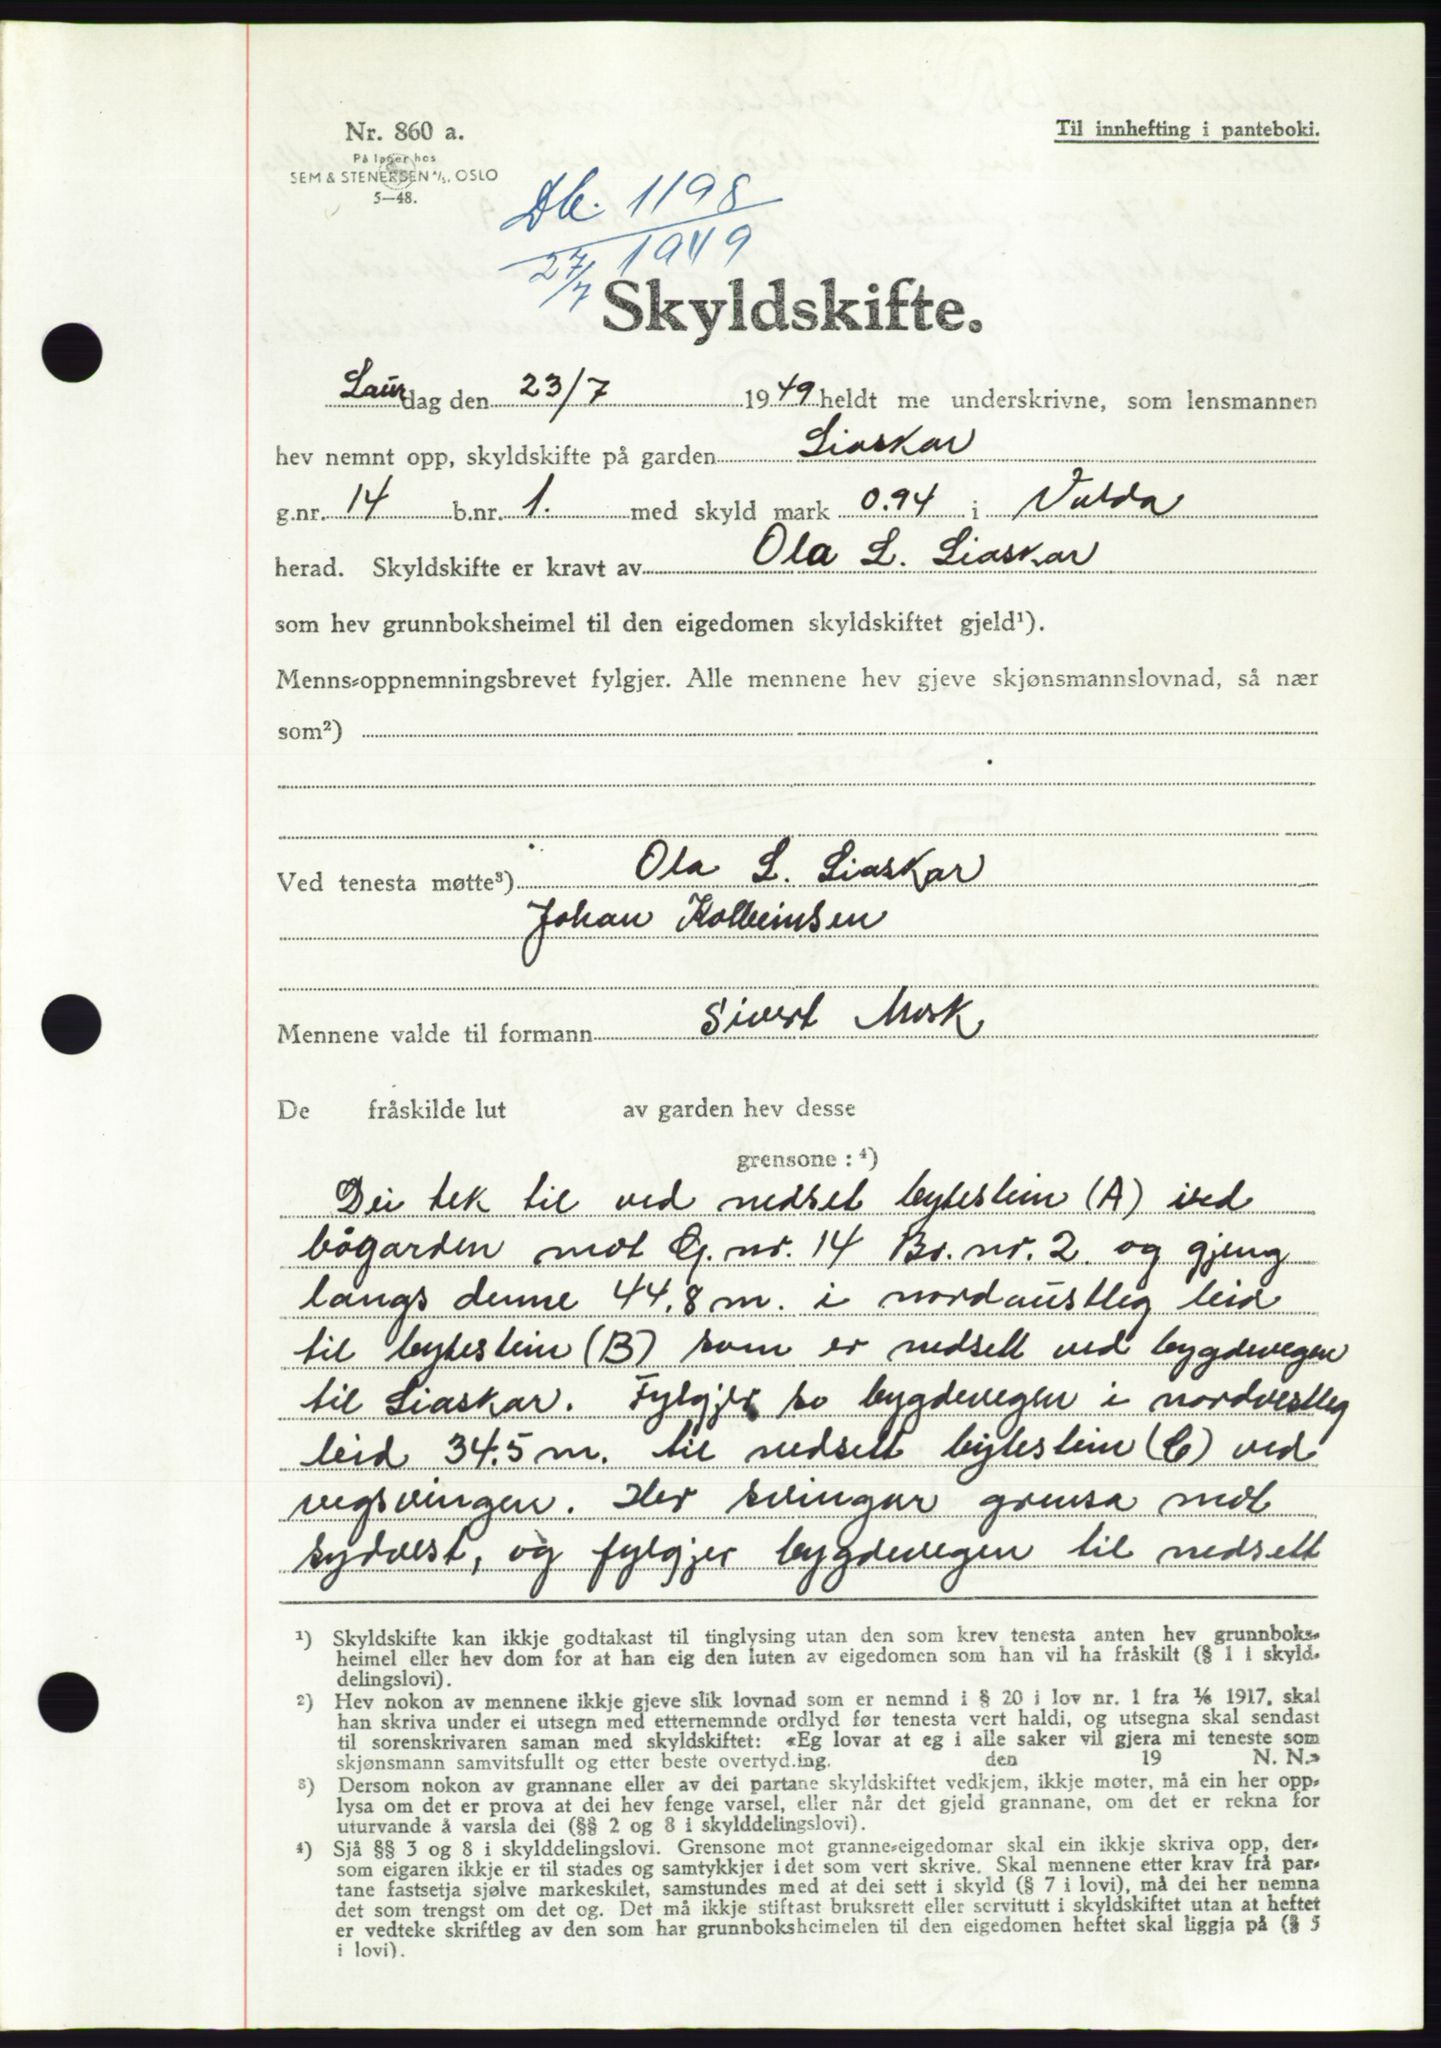 Nr. 860 a.
På lager hos
SEM & STENERSEN A/S, OSLO
5—48.
Til innhefting i panteboki.
Db. 1198
27/7 1949
Skyldskifte.
Laurdag den 23/7 1949 heldt me underskrivne, som lensmannen
hev nemnt opp, skyldskifte på garden Liaskar
g.nr. 14 b.nr. 1. med skyld mark 0.94 i Volda
herad. Skyldskifte er kravt av Ola L. Liaskar
som hev grunnboksheimel til den eigedomen skyldskiftet gjeld¹).
Menns-oppnemningsbrevet fylgjer. Alle mennene hev gjeve skjønsmannslovnad, så nær
som²)
Ved tenesta møtte³) Ola L. Liaskar
Johan Kolbeinsen
Mennene valde til formann Sivert Mork
De fråskilde lut av garden hev desse
grensone : ⁴)
Dei tek til ved nedset bytestein (A) ved
bøgarden mot G. nr. 14 Br. nr. 2 og gjeng
langs denne 44,8 m. i nordaustleg leid
til bytestein (B) som er nedsett ved bygdevegen
til Liaskar. Fylgjer so bygdevegen i nordvestleg
leid 34.5 m. til nedsett bytestein (C) ved
vegsvingen. Her svingar grensa mot
sydvest, og fylgjer bygdevegen til nedsett
¹) Skyldskifte kan ikkje godtakast til tinglysing utan den som krev tenesta anten hev grunnboks-
heimel eller hev dom for at han eig den luten av eigedomen som han vil ha fråskilt (§ 1 i skyld-
delingslovi).
²) Hev nokon av mennene ikkje gjeve slik lovnad som er nemnd i § 20 i lov nr. 1 fra 1/6 1917, skal
han skriva under ei utsegn med etternemnde ordlyd før tenesta vert haldi, og utsegna skal sendast
til sorenskrivaren saman med skyldskiftet: «Eg lovar at eg i alle saker vil gjera mi teneste som
skjønsmann samvitsfullt og etter beste overtyd.ing. den 19 N. N.»
³) Dersom nokon av grannane eller av dei partane skyldskiftet vedkjem, ikkje møter, må ein her opp-
lysa om det er prova at dei hev fenge varsel, eller når det gjeld grannane, om det er rekna for
uturvande å varsla dei (§§ 2 og 8 i skylddelingslovi).
⁴) Sjå §§ 3 og 8 i skylddelingslovi. Grensone mot granne-eigedomar skal ein ikkje skriva opp, der-
som eigaren ikkje er til stades og samtykkjer i det som vert skrive. Skal mennene etter krav frå par-
tane fastsetja sjølve markeskilet, samstundes med at dei sett i skyld (§ 7 i lovi), må dei her nemna
det som trengst om det og. Det må ikkje stiftast bruksrett eller servitutt i skyldskiftet utan at heftet
er vedteke skriftleg av den som har grunnboksheimelen til den eigedomen heftet skal liggja på (§ 5
i lovi).